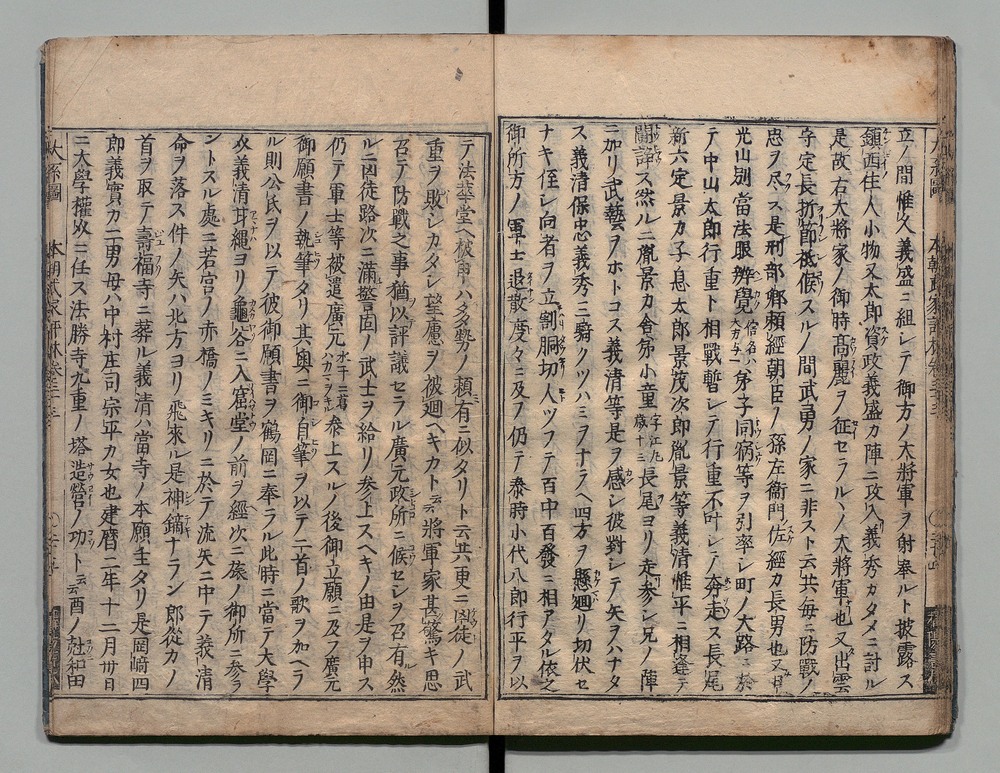 立ノ間惟久義盛ニ組シテ御方ノ大將軍ヲ射奉ルト披露ス
鎮西住人小物又太郎資政義盛カ陣ニ攻入義秀カタメニ討ル
是故右大將家ノ御時高麗ヲ征セラル丶ノ大將軍也又出雲
守定長折節祗候スルノ間武勇ノ家ニ非スト云共毎ニ防戰ノ
忠ヲ尽ス是刑部卿頼經朝臣ノ孫左衞門佐經カ長男也又日
光山別當法眼辨覺俗名ハ大方与一弟子同宿等ヲ引率シ町ノ大路ニ於
テ中山太郎行重ト相戰暫シテ行重不叶シテ奔走ス長尾
新六定景カ子息太郎景茂次郎胤景等義清惟平ニ相逢テ
鬪諍ス然ルニ胤景カ舎弟小童字江丸歳十三長尾ヨリ走参シ兄ノ陣
ニ加リ武藝ヲホトコス義清等是ヲ感シ彼對シテ矢ヲハナタ
ス義清保忠義秀三騎クツハミヲナラヘ四方ヲ懸廻リ切伏セ
ナキ侄シ向者ヲ立割胴切人ツフテ百中百發ニ相アタル依之
御所方ノ軍士退散度々ニ及フ仍テ泰時小代八郎行平ヲ以
テ法華堂ヘ被申ハ多勢ノ頼有ニ似タリト云共更ニ凶徒ノ武
重ヲ敗シカタシ望慮ヲ被廻ヘキカト云云將軍家甚驚キ思
召テ防戰之事猶以評議セラル廣元政所ニ候セシヲ召有然
ルニ凶徒路次ニ滿警固ノ武士ヲ給リ参上スヘキノ由是ヲ申ス
仍テ軍士等被遣廣元水干葛袴参上スルノ後御立願ニ及フ廣元
御願書ノ執筆タリ其奥ニ御自筆ヲ以テ二首ノ歌ヲ加ヘラ
ル則公氏ヲ以テ彼御願書ヲ鶴岡ニ奉ラル此時ニ當テ大學
助義清甘縄ヨリ龜谷ニ入窟堂ノ前ヲ經次ニ旅ノ御所ニ参ラ
ントスル處ニ若宮ノ赤橋ノミキリニ於テ流矢ニ中テ義清
命ヲ落ス件ノ矢ハ北方ヨリ飛來ル是神鏑ナラン郎從カノ
首ヲ取テ壽福寺ニ葬ル義清ハ當寺ノ本願主タリ是岡﨑四
郎義實カ二男母ハ中村庄司宗平カ女也建暦二年十二月卅日
ニ大學權助ニ任ス法勝寺九重ノ塔造營ノ功ト云云酉ノ尅和田
大系圖 本朝武家評林卷三十三